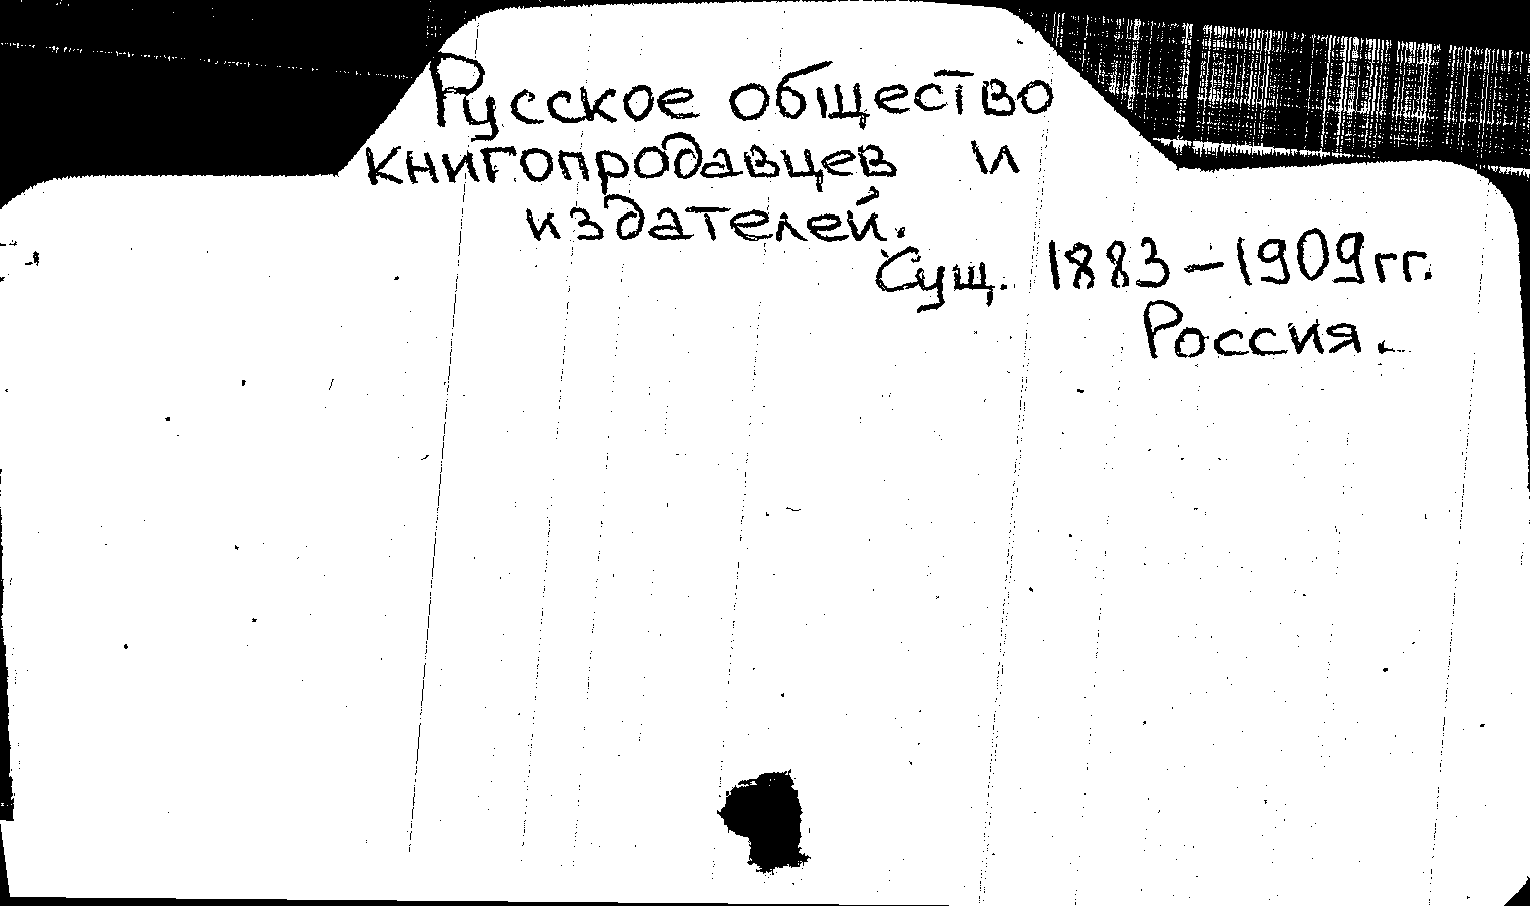 Русское общество
книгопродавцев и
издателей.
Сущ. 1883–1909 гг.
Россия.